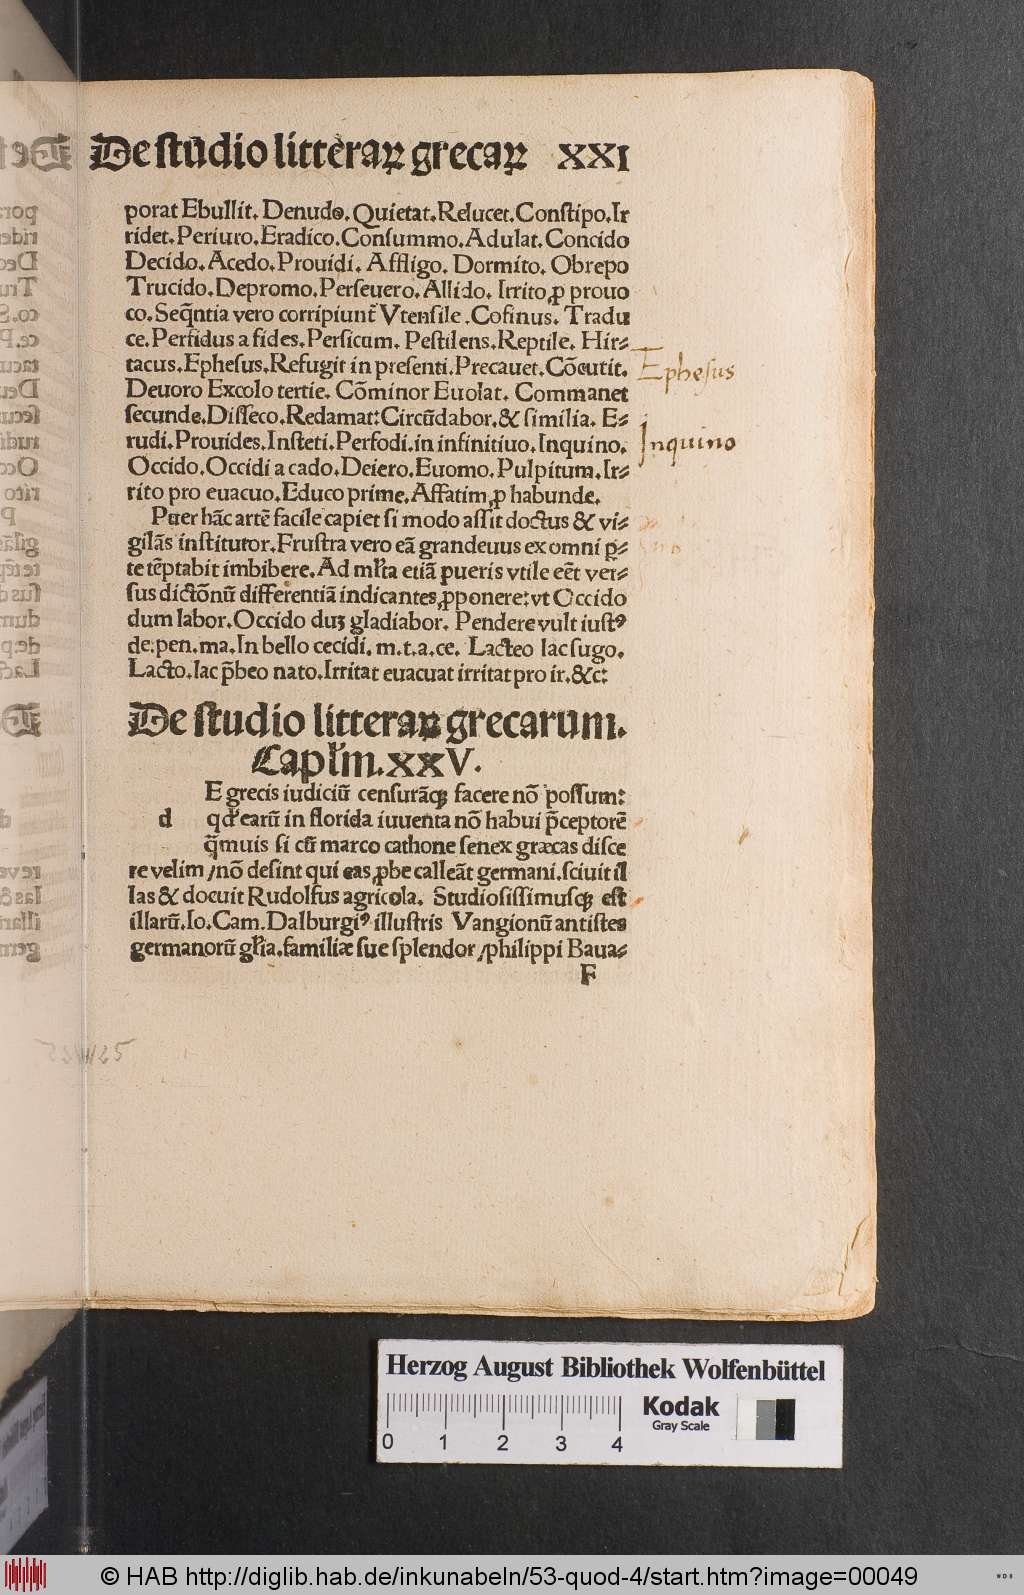 De studio litteraꝝ grecaꝝ XXI
porat Ebullit. Denudo. Quietat. Relucet. Constipo. Ir
ridet. Periuro. Eradico. Consummo. Adulat. Concido
Decido. Acedo. Prouidi. Affligo. Dormito. Obrepo
Trucido. Depromo. Perseuero. Allido. Irrito, ꝓ prouo
co. Seq̃ntia vero corripiunt̃ Vtensile. Cofinus. Tradu
ce. Perfidus a fides. Persicum. Pestilens. Reptile. Hir⸗
tacus. Ephesus. Refugit in presenti. Precauet. Cõcutit.
Deuoro Excolo tertie. Cõminor Euolat. Commanet
secunde. Disseco. Redamat: Circũdabor. & similia. E⸗
rudi. Prouides. Insteti. Perfodi. in infinitiuo. Inquino.
Occido. Occidi a cado. Deiero. Euomo. Pulpitum. Ir⸗
rito pro euacuo. Educo prime. Affatim, ꝓ habunde.
Puer hãc artẽ facile capiet si modo assit doctus & vi⸗
gilãs institutor. Frustra vero eã grandeuus ex omni ꝑ⸗
te tẽptabit imbibere. Ad ml̃ta etiã pueris vtile eẽt ver⸗
sus dictõnũ differentiã indicantes, ꝓponere: vt Occido
dum labor. Occido duꝫ gladiabor. Pendere vult iustꝰ
de: pen. ma. In bello cecidi. m. t. a. ce. Lacteo lac sugo.
Lacto. lac p̃beo nato. Irritat euacuat irritat pro ir. &c:
De studio litteraꝝ grecarum.
Capl̃m. XXV.
E grecis iudiciũ censurãqꝫ facere nõ possum:
d qđ earũ in florida iuuenta nõ habui p̃ceptorẽ
q̃muis si cũ marco cathone senex græcas disce
re velim / nõ desint qui eas, ꝓbe calleãt germani. sciuit il
las & docuit Rudolfus agricola. Studiosissimusqꝫ est
illarũ. Io. Cam. Dalburgiꝰ illustris Vangionũ antistes
germanorũ gl̃ia. familiæ sue splendor / philippi Baua⸗
F
Ephesus
Inquino
Herzog August Bibliothek Wolfenbüttel
0 1 2 3 4
Kodak
Gray Scale
© HAB http://diglib.hab.de/inkunabeln/53-quod-4/start.htm?image=00049